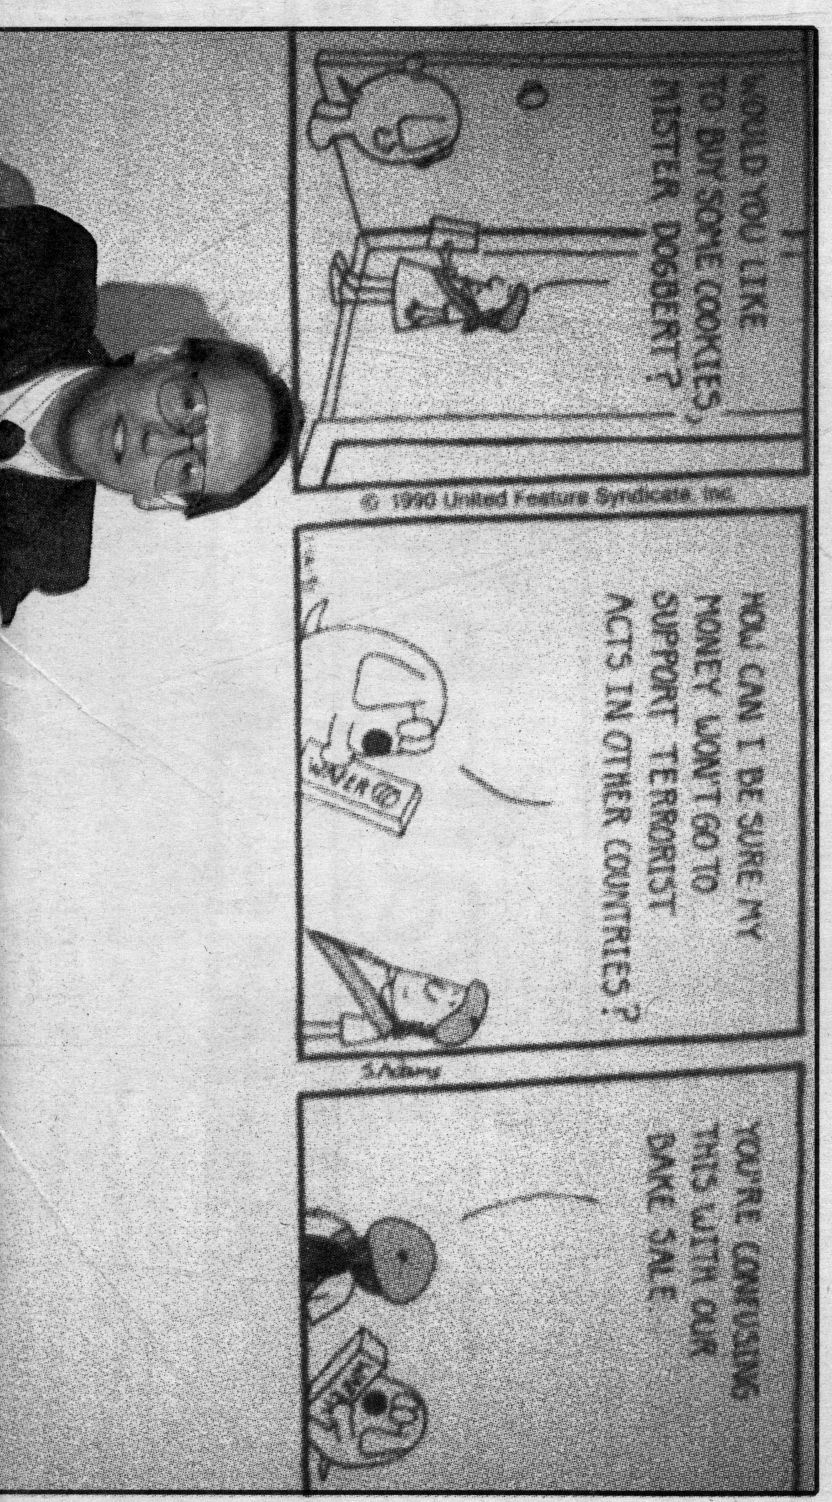 WOULD YOU LIKE
TO BUY SOME COOKIES,
MISTER DOGBERT?
© 1990 United Feature Syndicate, Inc.
HOW CAN I BE SURE MY
MONEY WON'T GO TO
SUPPORT TERRORIST
ACTS IN OTHER COUNTRIES?
S.Adams
YOU'RE CONFUSING
THIS WITH OUR
BAKE SALE.